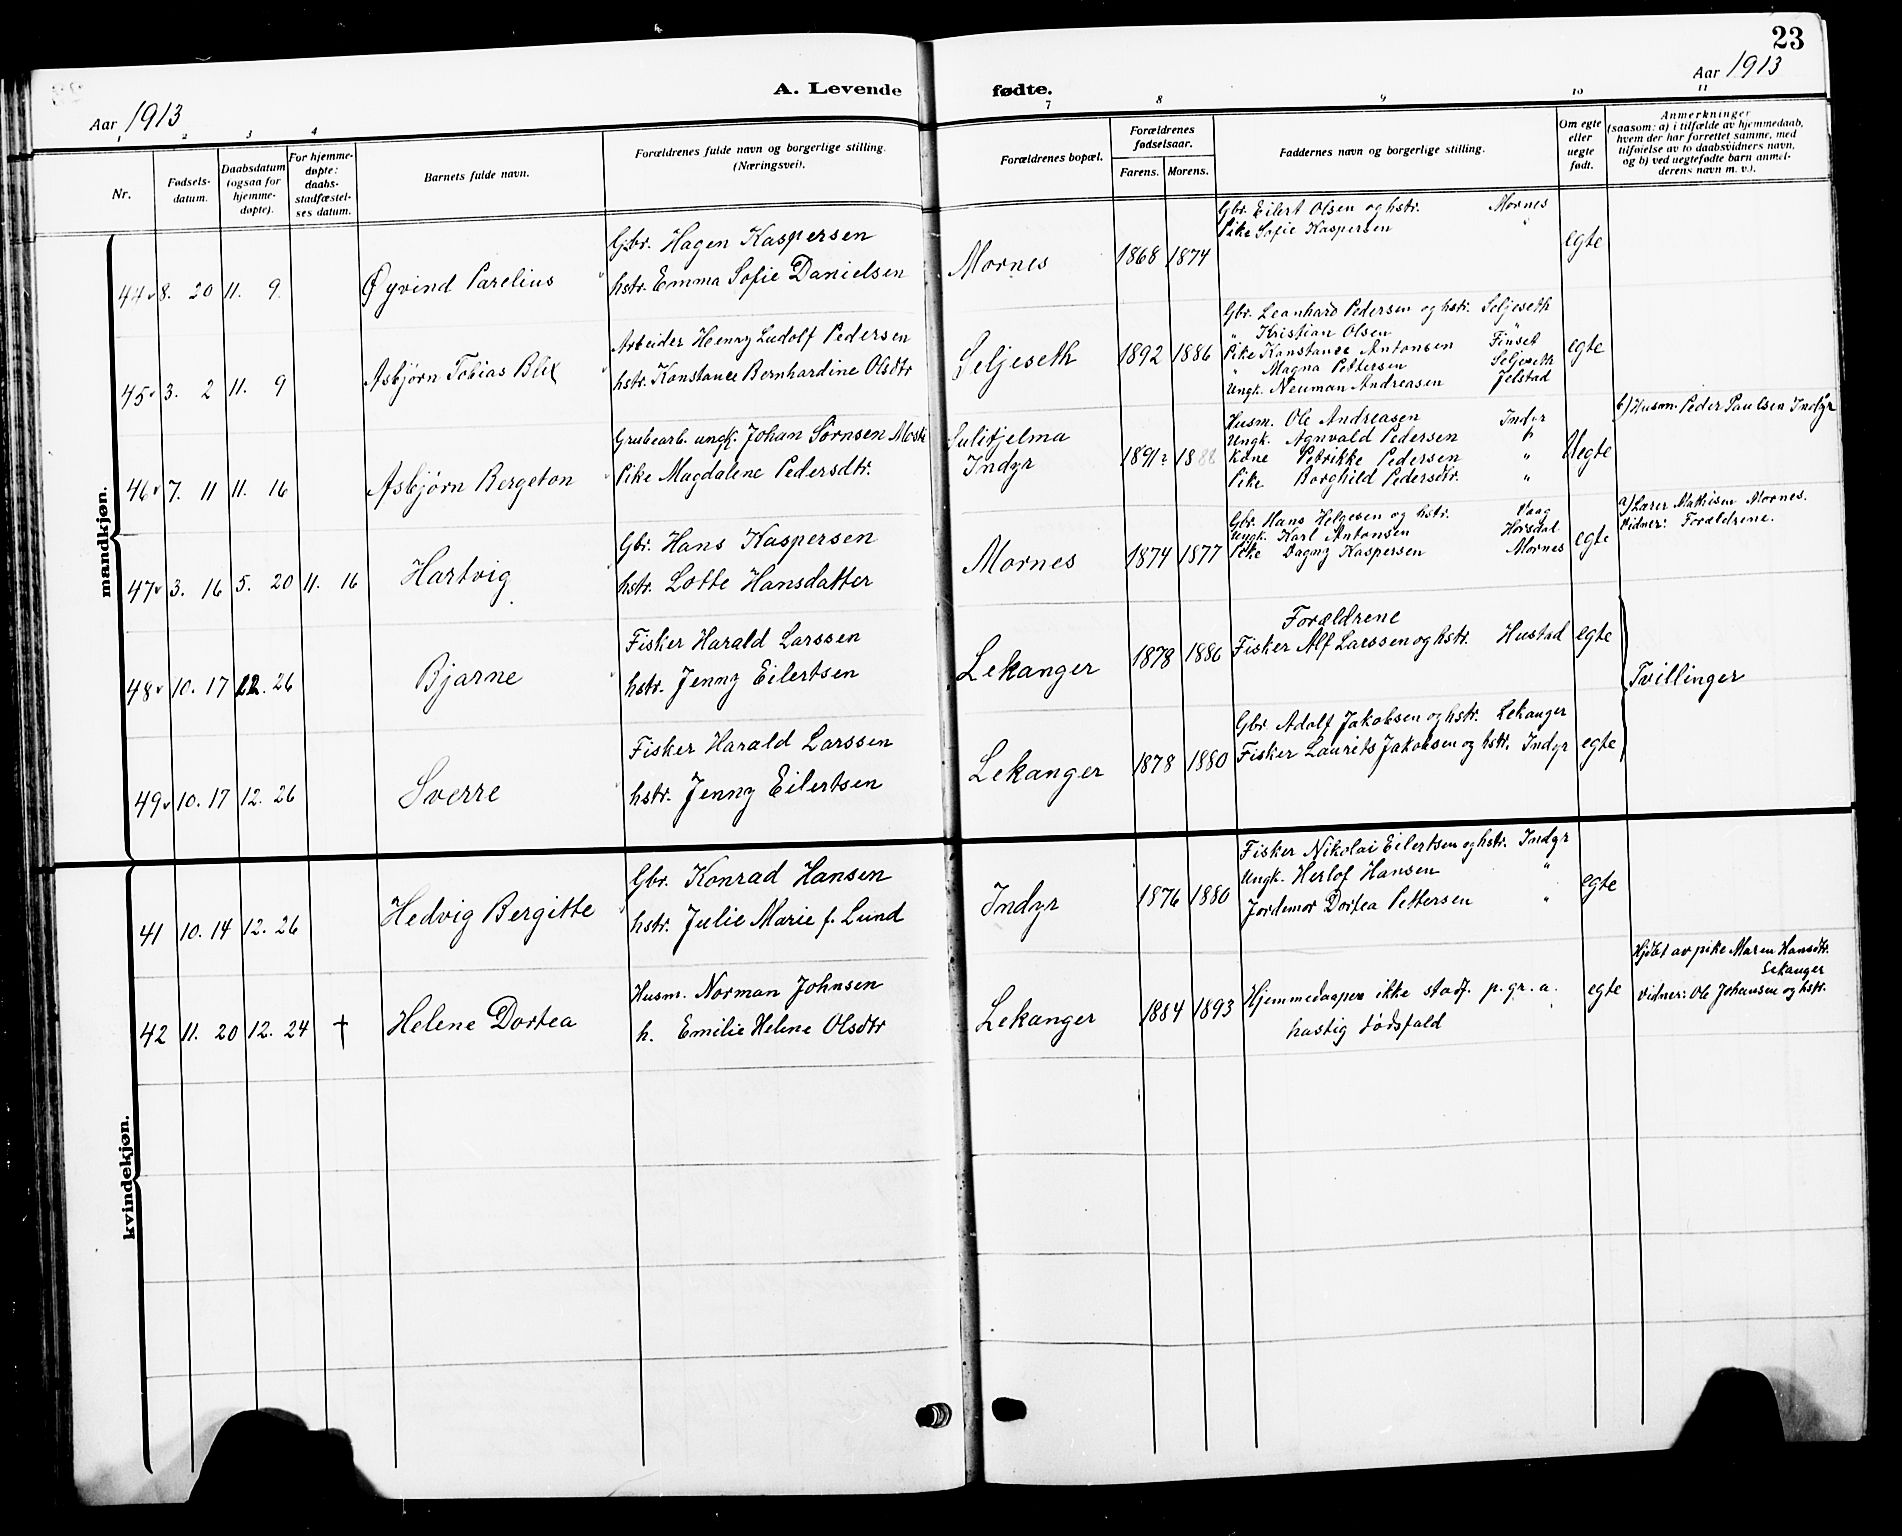 23
Aar 1913
A. Levende fødte.
Aar 1913
1 2 3 4 7 8 9 10 11
Nr.
Fødsels-
datum.
Daabsdatum
(ogsaa for
hjemme-
døpte).
For hjemme-
døpte:
daabs-
stadfæstel-
ses datum.
Barnets fulde navn.
Forældrenes fulde navn og borgerlige stilling.
(Næringsvei).
Forældrenes bopæl.
Forældrenes
fødselsaar.
Farens. Morens.
Faddernes navn og borgerlige stilling.
Om egte
eller
uegte
født.
Anmerkninger
(saasom: a) i tilfælde av hjemmedaab,
hvem der har forrettet samme, med
tilføielse av to daabsvidners navn,
og b) ved uegtefødte barn anmel-
derens navn m. v.).
mandkjøn.
44 8. 20 11. 9. Øyvind Parelius
Gbr. Hagen Kaspersen
hstr. Emma Sofie Danielsen
Mornes 1868 1874
Gbr. Eilert Olsen og hstr. Mornes
Pike Sofie Kaspersen "
egte
45 3. 2 11. 9 Asbjørn Tobias Blix
Arbeider Henny Ludolf Pedersen
hstr. Konstance Bernhardine Olsdtr
Seljeseth 1892 1886
Gbr. Leonhard Pedersen og hstr. Seljeseth
" Kristian Olsen "
Pike Konstance Antonsen Finset
" Magna Pettersen Seljeseth
Ungk. Neuman Andreasen Jelstad
egte
46 7. 11 11. 16 Asbjørn Bergeton
Grubearb. ungk. Johan Sørnsen
Pike Magdalene Pedersdtr.
Sulitjelma
Indyr
1891? 1888
Husm. Ole Andreasen Indyr
Ungk. Agnvald Pedersen "
Kone Petrikke Pedersen "
Pike Borghild Pedersdtr. "
Uegte
b) Husm. Peder Paulsen Indyr
47 3. 16 5. 20 11. 16 Hartvig
Gbr. Hans Kaspersen
hstr. Lotte Hansdatter
Mornes 1874 1877
Gbr. Hans Helgesen og hstr. Vaag
Ungk. Karl Antonsen Horsdal
Pike Dagny Kaspersen Mornes
egte
a) Lærer Mathisen Mornes.
Vidner: Forældrene.
48 10. 17 12. 26 Bjarne
Fisker Harald Larssen
hstr. Jenny Eilertsen
Lekanger 1878 1886
Forældrene
Fisker Alf Larssen og hstr. Hustad
egte
Tvillinger
49 10. 17 12. 26 Sverre
Fisker Harald Larssen
hstr. Jenny Eilertsen
Lekanger 1878 1880
Gbr. Adolf Jakobsen og hstr. Lekanger
Fisker Laurits Jakobsen og hstr. Indyr
egte
kvindekjøn.
41 10. 14 12. 26 Hedvig Bergitte
Gbr. Konrad Hansen
hstr. Julie Marie f. Lund
Indyr 1876 1880
Fisker Nikolai Eilertsen og hstr. Indyr
Ungk. Herlof Hansen "
Jordemor Dortea Pettersen "
egte
42 11. 20 12. 24 † Helene Dortea
Husm. Norman Johnsen
h. Emilie Helene Olsdtr
Lekanger 1884 1893
Hjemmedaapen ikke stadf. p. gr. a.
hastig dødsfald
egte
Hjdøt av pike Maren Hansdtr.
Lekanger
Vidner: Ole Johansen og hstr.